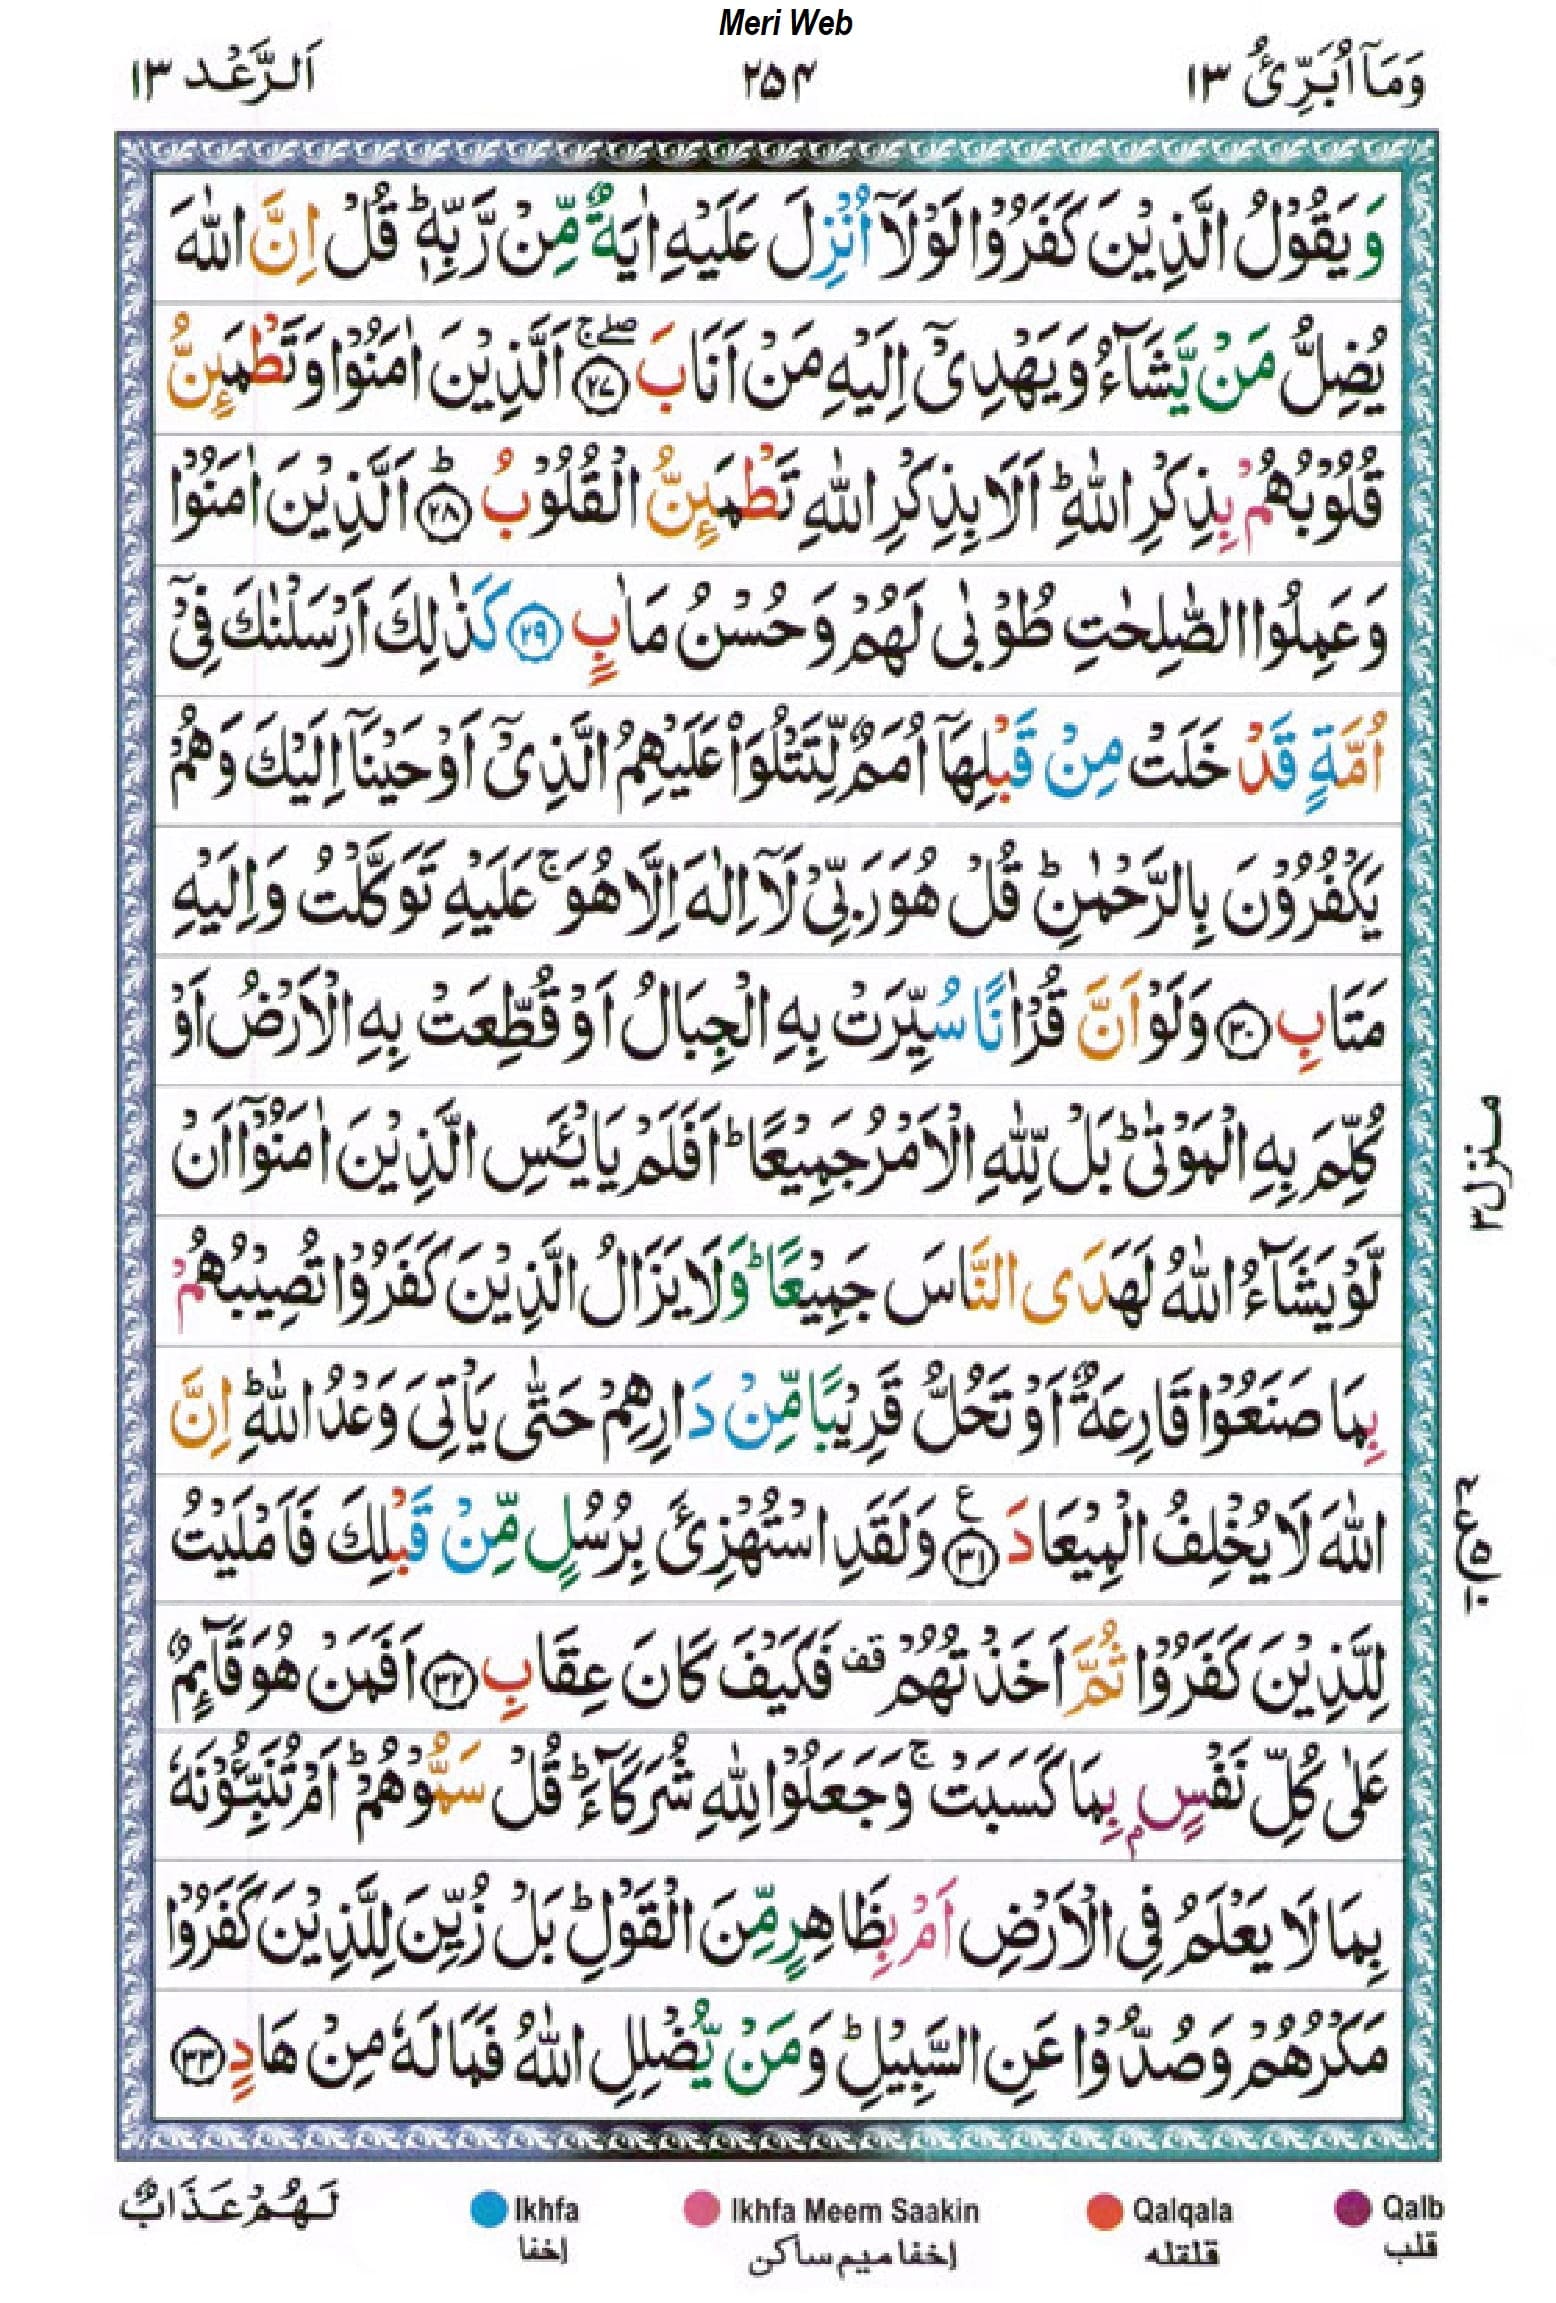 Meri Web
وَمَآ اُبَرِّئُ ١٣
٢٥٤
اَلرَّعْد ١٣
وَيَقُوْلُ الَّذِيْنَ كَفَرُوْا لَوْلَآ اُنْزِلَ عَلَيْهِ اٰيَةٌ مِّنْ رَّبِّهٖ ؕ قُلْ اِنَّ اللّٰهَ
يُضِلُّ مَنْ يَّشَآءُ وَيَهْدِىْۤ اِلَيْهِ مَنْ اَنَابَ ۖۚ ﴿٢٧﴾ اَلَّذِيْنَ اٰمَنُوْا وَتَطْمَئِنُّ
قُلُوْبُهُمْ بِذِكْرِ اللّٰهِ ؕ اَلَا بِذِكْرِ اللّٰهِ تَطْمَئِنُّ الْقُلُوْبُ ؕ ﴿٢٨﴾ اَلَّذِيْنَ اٰمَنُوْا
وَعَمِلُوا الصّٰلِحٰتِ طُوْبٰى لَهُمْ وَحُسْنُ مَاٰبٍ ﴿٢٩﴾ كَذٰلِكَ اَرْسَلْنٰكَ فِىْۤ
اُمَّةٍ قَدْ خَلَتْ مِنْ قَبْلِهَاۤ اُمَمٌ لِّتَتْلُوَا۟ عَلَيْهِمُ الَّذِىْۤ اَوْحَيْنَاۤ اِلَيْكَ وَهُمْ
يَكْفُرُوْنَ بِالرَّحْمٰنِ ؕ قُلْ هُوَ رَبِّىْ لَاۤ اِلٰهَ اِلَّا هُوَ ۚ عَلَيْهِ تَوَكَّلْتُ وَاِلَيْهِ
مَتَابِ ﴿٣٠﴾ وَلَوْ اَنَّ قُرْاٰنًا سُيِّرَتْ بِهِ الْجِبَالُ اَوْ قُطِّعَتْ بِهِ الْاَرْضُ اَوْ
كُلِّمَ بِهِ الْمَوْتٰى ؕ بَلْ لِّلّٰهِ الْاَمْرُ جَمِيْعًا ؕ اَفَلَمْ يَايْـَٔسِ الَّذِيْنَ اٰمَنُوْۤا اَنْ
لَّوْ يَشَآءُ اللّٰهُ لَهَدَى النَّاسَ جَمِيْعًا ؕ وَلَا يَزَالُ الَّذِيْنَ كَفَرُوْا تُصِيْبُهُمْ
بِمَا صَنَعُوْا قَارِعَةٌ اَوْ تَحُلُّ قَرِيْبًا مِّنْ دَارِهِمْ حَتّٰى يَاْتِىَ وَعْدُ اللّٰهِ ؕ اِنَّ
اللّٰهَ لَا يُخْلِفُ الْمِيْعَادَ ﴿٣١﴾ ع وَلَقَدِ اسْتُهْزِئَ بِرُسُلٍ مِّنْ قَبْلِكَ فَاَمْلَيْتُ
لِلَّذِيْنَ كَفَرُوْا ثُمَّ اَخَذْتُهُمْ قف فَكَيْفَ كَانَ عِقَابِ ﴿٣٢﴾ اَفَمَنْ هُوَ قَآئِمٌ
عَلٰى كُلِّ نَفْسٍ ۢ بِمَا كَسَبَتْ ۚ وَجَعَلُوْا لِلّٰهِ شُرَكَآءَ ؕ قُلْ سَمُّوْهُمْ ؕ اَمْ تُنَبِّـُٔوْنَهٗ
بِمَا لَا يَعْلَمُ فِى الْاَرْضِ اَمْ بِظَاهِرٍ مِّنَ الْقَوْلِ ؕ بَلْ زُيِّنَ لِلَّذِيْنَ كَفَرُوْا
مَكْرُهُمْ وَصُدُّوْا عَنِ السَّبِيْلِ ؕ وَمَنْ يُّضْلِلِ اللّٰهُ فَمَا لَهٗ مِنْ هَادٍ ﴿٣٣﴾
منزل ٣
لَهُمْ عَذَابٌ
Ikhfa
اخفا
Ikhfa Meem Saakin
اخفا میم ساکن
Qalqala
قلقله
Qalb
قلب